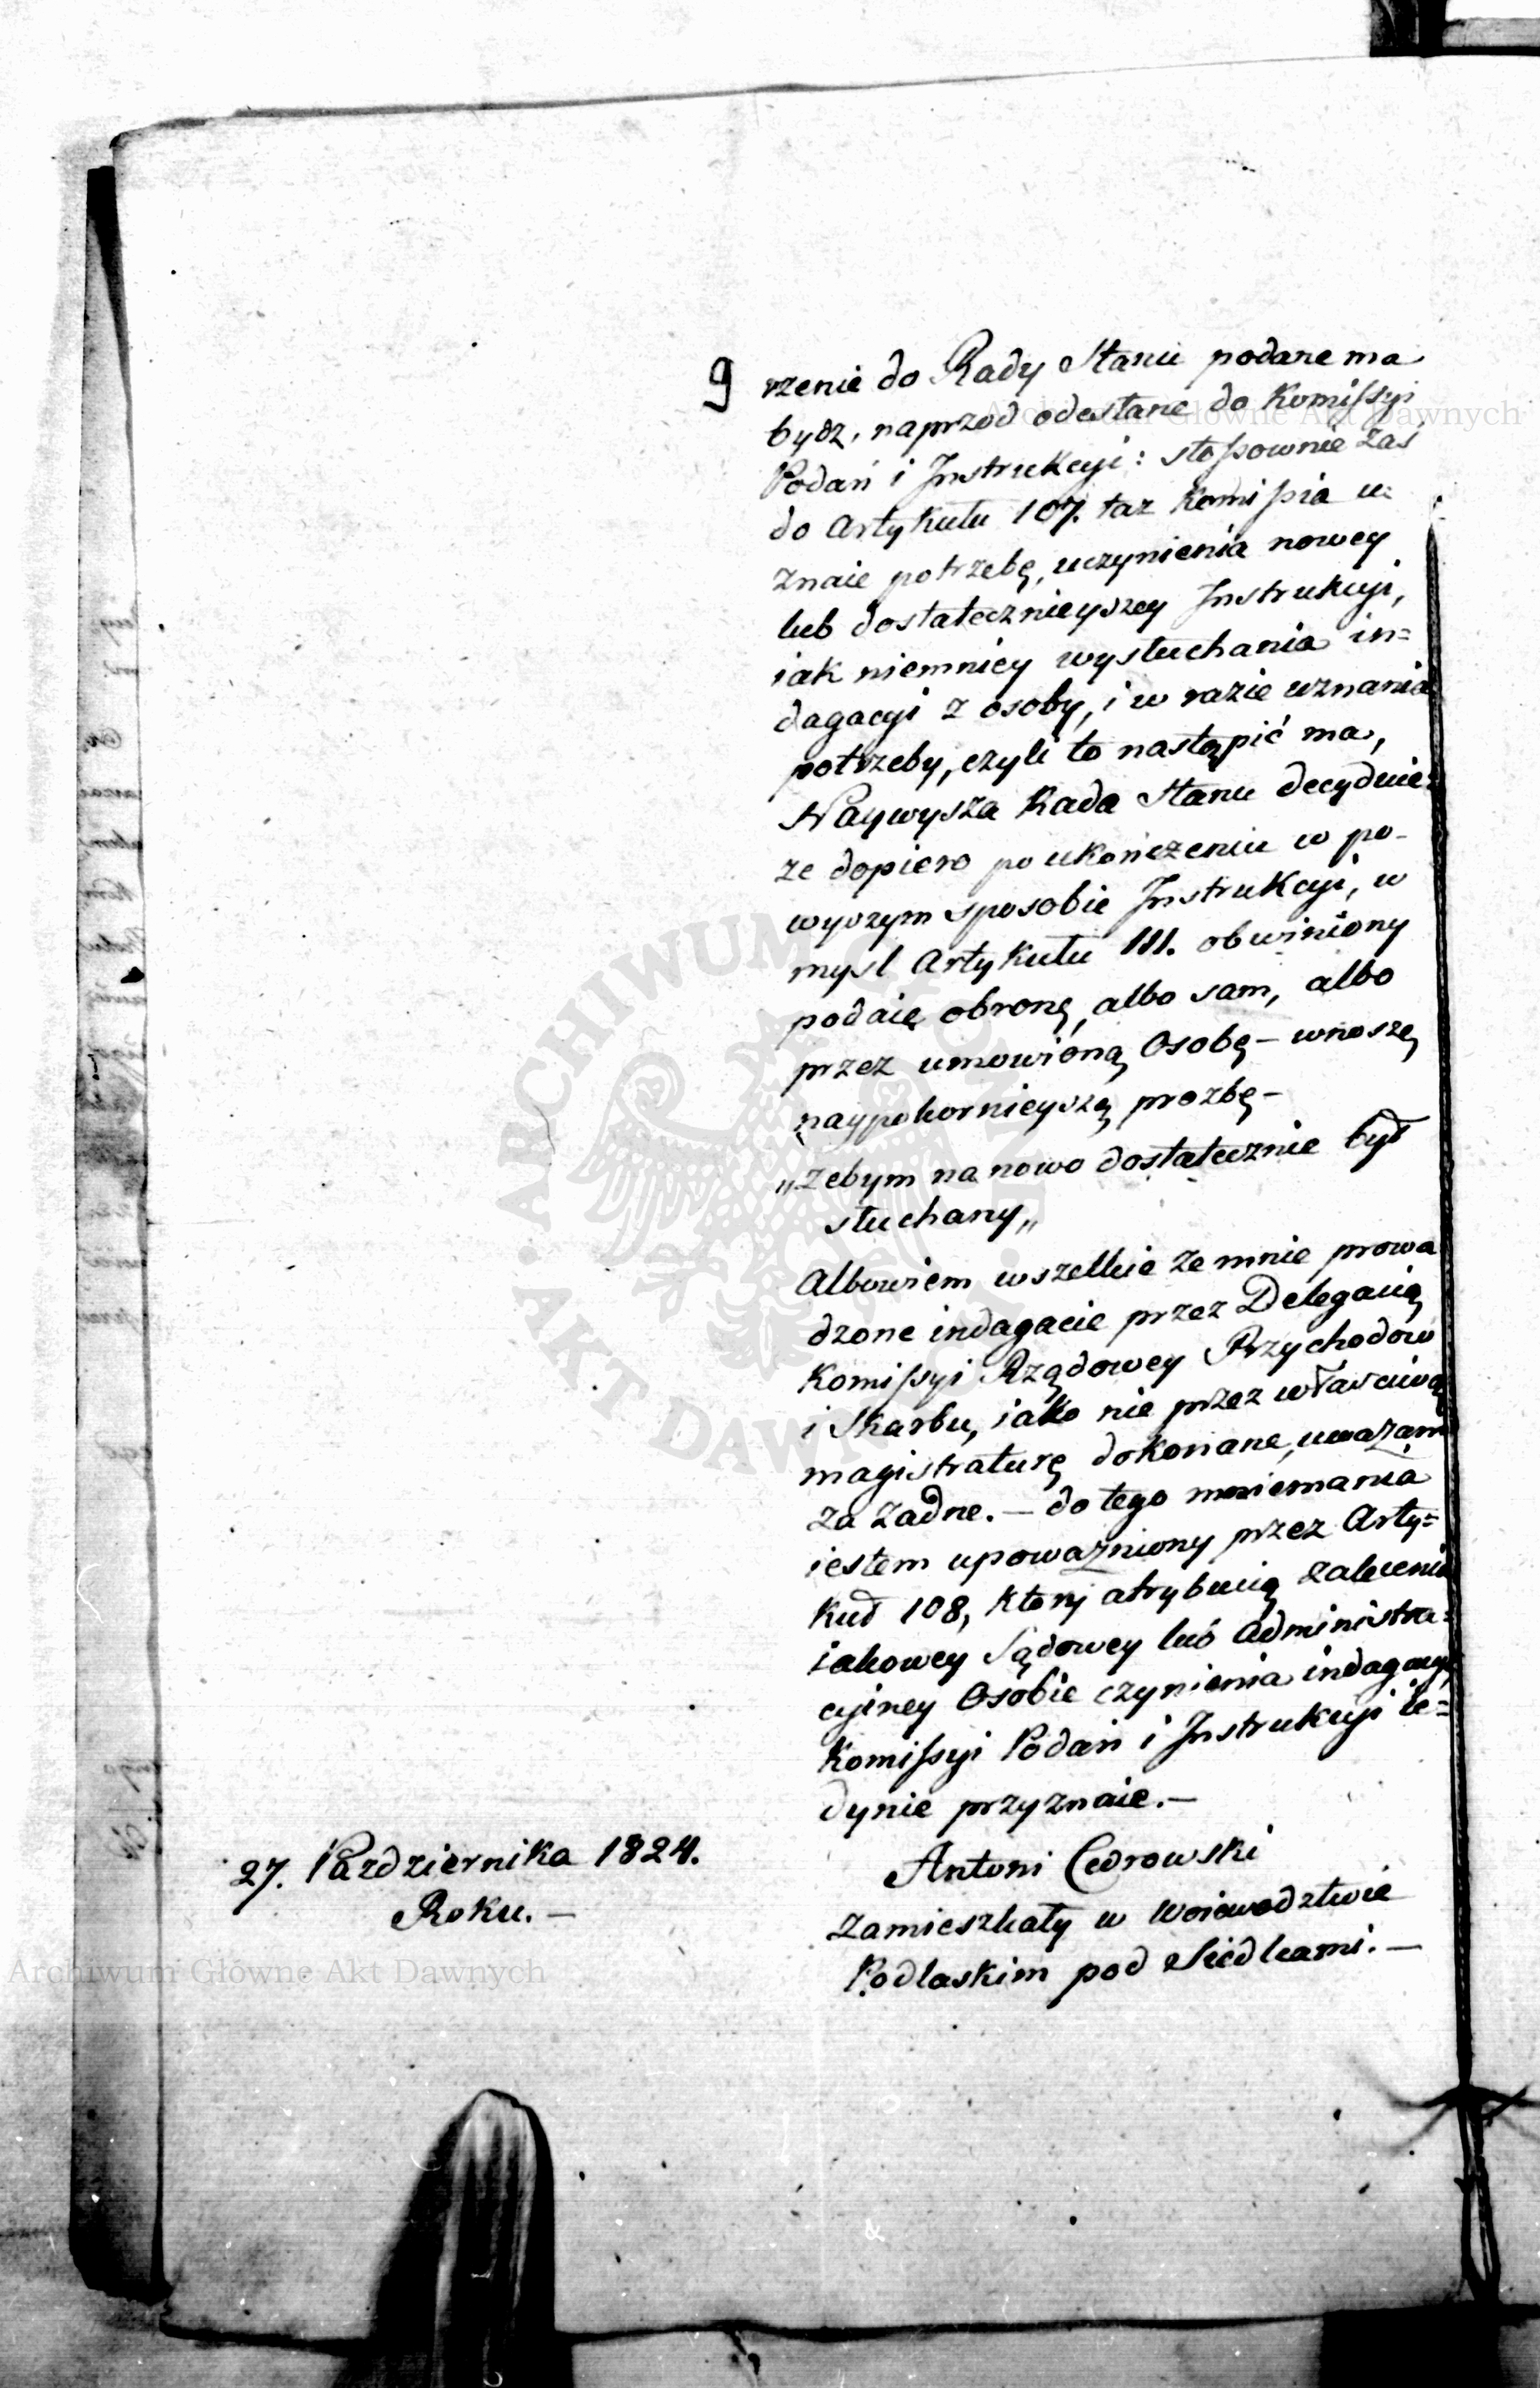 9
rzenie do Rady Stanu podane ma
bydz, naprzod odesłane do Komissyi
Podań i Instrukcyi: stosownie zaś
do Artykułu 107. taz Komissia u=
znaie potrzebę, uczynienia nowey
lub dostatecznieyszey Instrukcyi,
iak niemniey wysłuchania in=
dagacyi z osoby, i w razie uznania
potrzeby, czyli to nastąpić ma,
Naywysza Rada Stanu decyduie:
ze dopiero po ukończeniu w po-
wyzszym sposobie Instrukcyi, w
mysl Artykułu 111. obwiniony
podaie obronę, albo sam, albo
przez umowioną Osobę – wnoszę
naypokornieyszą prozbę –
„zebym na nowo dostatecznie był
słuchany„
Albowiem wszelkie ze mnie prowa
dzone indagacie przez Delegacią
Komissyi Rządowey Przychodow
i Skarbu, iako nie przez właściwą
magistraturę dokonane, uwazam
za zadne. – do tego mniemania
iestem upowazniony przez Arty=
kuł 108, ktory atrybucią zalecenia
iakowey Sądowey lub Administra=
cyiney Osobie czynienia indagacyi,
Komissyi Podań i Instrukcyi ie=
dynie przyznaie. –
Antoni Cedrowski
zamieszkały w Woiewodztwie
Podlaskim pod Siedlcami. –
27. Pazdziernika 1824.
Roku. –
Archiwum Główne Akt Dawnych
Archiwum Główne Akt Dawnych
ARCHIWUM GŁÓWNE
· AKT DAWNYCH ·